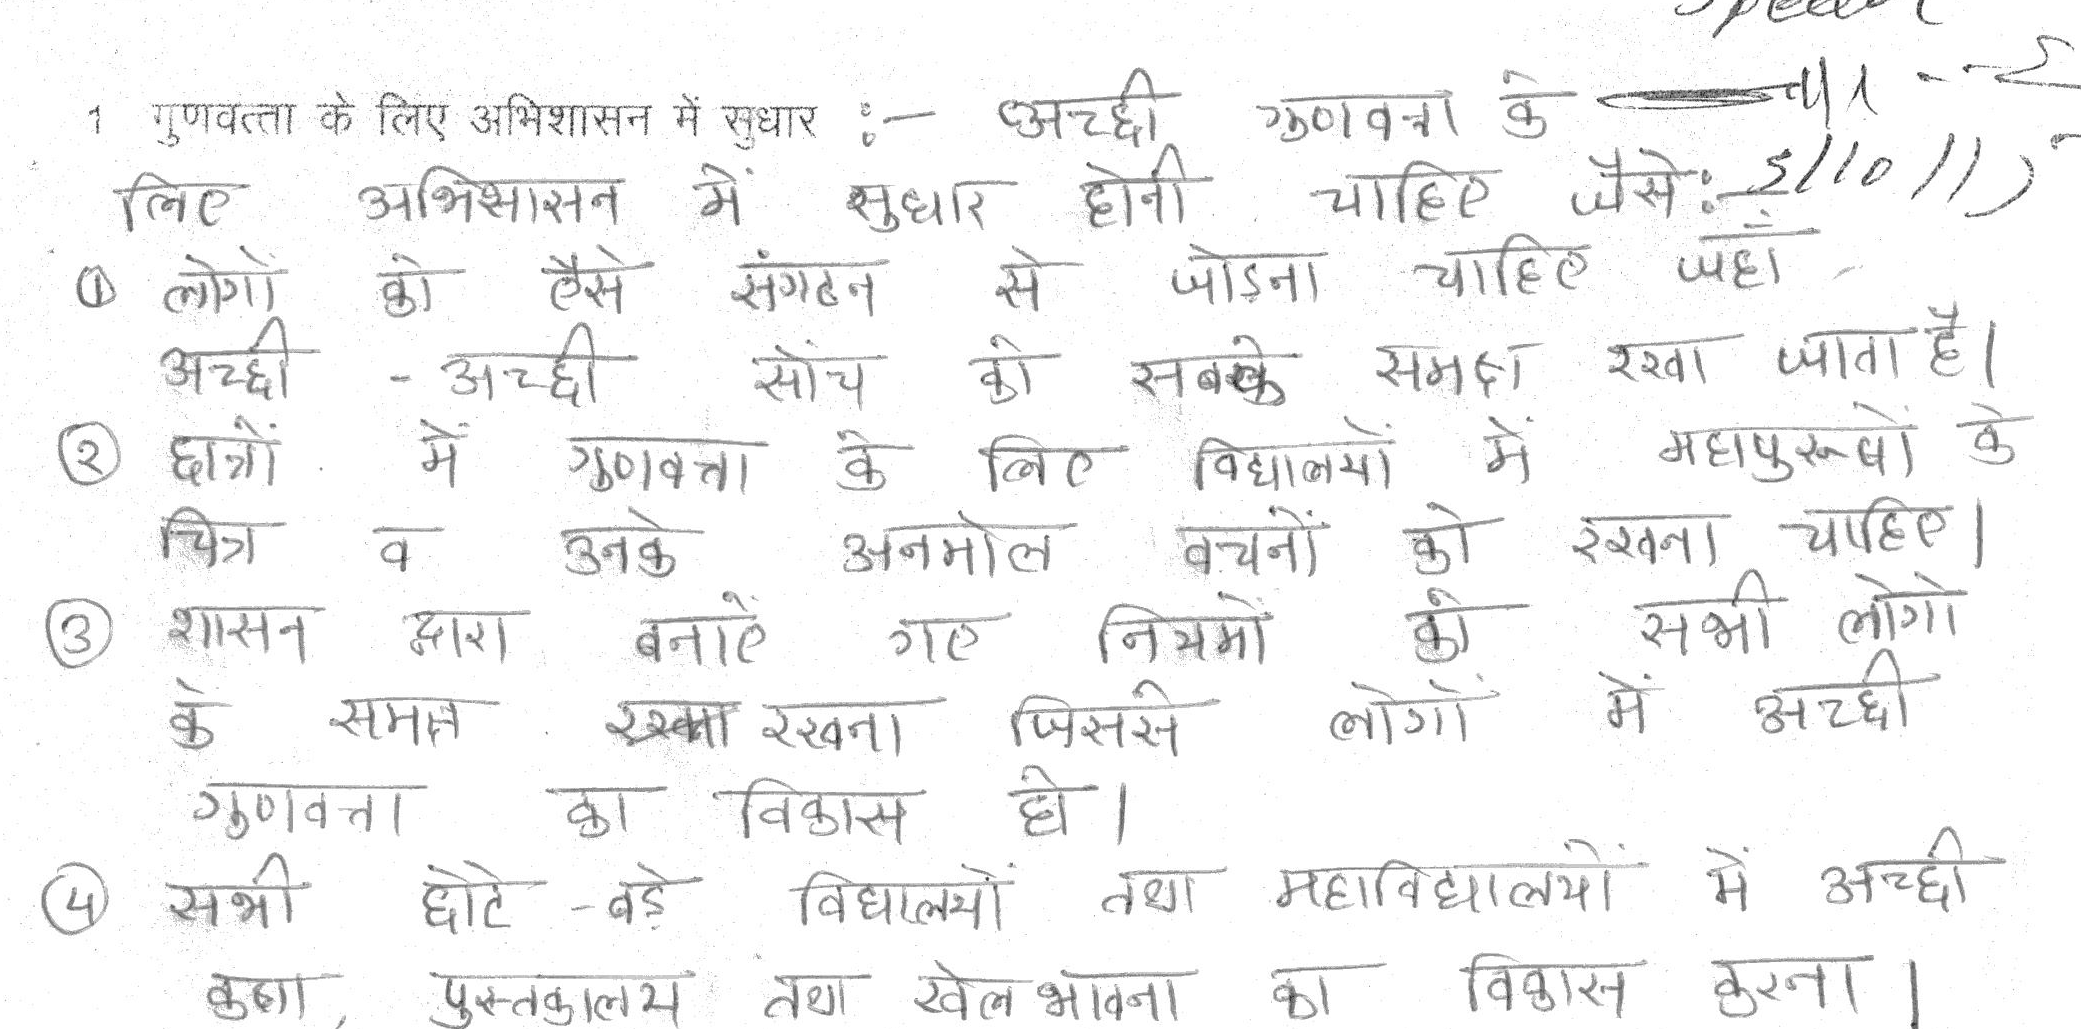 1 गुणवत्ता के लिए अभिशासन में सुधार :- अच्छी गुणवत्ता के
लिए अभिशासन में सुधार होनी चाहिए जैसे:-
① लोगों को ऐसे संगठन से जोड़ना चाहिए जहाँ
अच्छी - अच्छी सोंच को सबके समक्ष रखा जाता है।
② छात्रों में गुणवत्ता के लिए विद्यालयों में महापुरूषों के
चित्र व उनके अनमोल वचनों को रखना चाहिए।
③ शासन द्वारा बनाऐं गए नियमों को सभी लोगो
के समक्ष रखना जिससे लोगों में अच्छी
गुणवत्ता का विकास हो।
④ सभी छोटे - बड़े विद्यालयों तथा महाविद्यालयों में अच्छी
कक्षा, पुस्तकालय तथा खेल भावना का विकास करना।